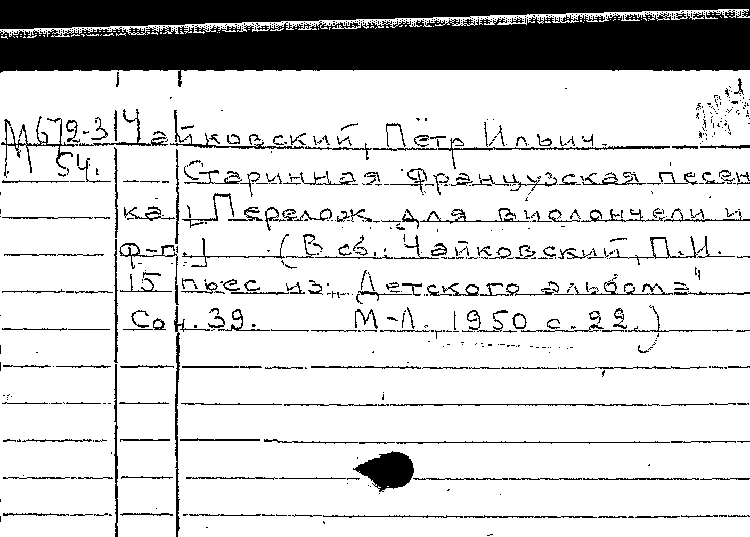 М672-3 Чайковский, Пётр Ильич.
54. Старинная французская песен
ка [Перелож для виолончели и
ф-п.] (В сб.: Чайковский, П.И.
15 пьес из: „Детского альбома"
Соч. 39. М-Л., 1950 с. 22.)